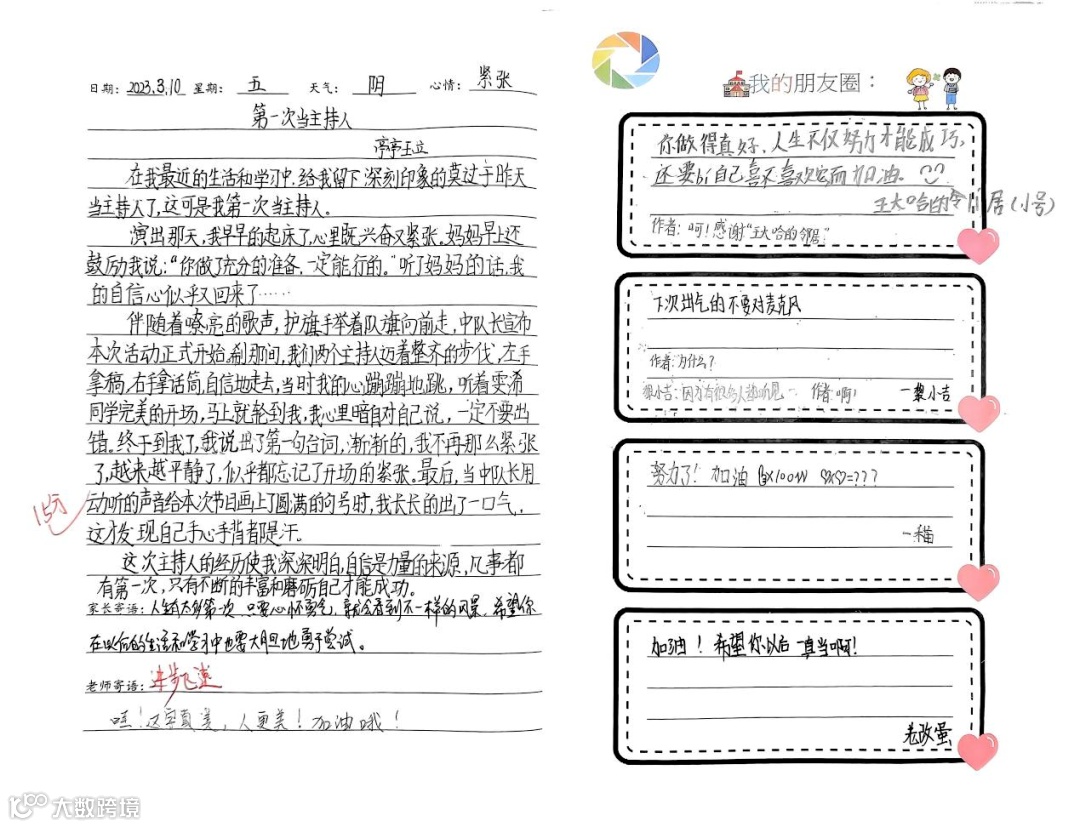 日期：2023.3.10 星期：五 天气：阴 心情：紧张
第一次当主持人
亭亭玉立
在我最近的生活和学习中，给我留下深刻印象的莫过于昨天
当主持人了，这可是我第一次当主持人。
演出那天，我早早的起床了，心里既兴奋又紧张。妈妈早上还
鼓励我说：“你做了充分的准备，一定能行的。”听了妈妈的话，我
的自信心似乎又回来了……
伴随着嘹亮的歌声，护旗手举着队旗向前走，中队长宣布
本次活动正式开始，刹那间，我们两个主持人迈着整齐的步伐，左手
拿稿，右手拿话筒，自信地走去，当时我的心蹦蹦地跳，听着雯希
同学完美的开场，马上就轮到我，我心里暗自对自己说，一定不要出
错。终于到我了，我说出了第一句台词，渐渐的，我不再那么紧张
了，越来越平静了，似乎都忘记了开场的紧张。最后，当中队长用
动听的声音给本次节目画上了圆满的句号时，我长长的出了一口气，
这才发现自己手心手背都是汗。
15元
这次主持人的经历使我深深明白，自信是力量的来源，凡事都
有第一次，只有不断的丰富和磨砺自己才能成功。
家长寄语：人生有太多第一次，只要心怀勇气，就会看到不一样的风景，希望你
在以后的生活和学习中也要大胆地勇于尝试。
老师寄语：进步飞速
哇！这字真美，人更美！加油哦！
我的朋友圈：
你做得真好，人生不仅努力才能成巧，
还要bi自己喜不喜欢它而加油。
王大哈的令阝居(小号)
作者：呵！感谢“王大哈的邻居”
下次出气的不要对麦克风
作者：为什么？
黎小吉：因为有很多人都听见 作者：啊！
一黎小吉
努力了！加油 100W =???
一猫
加油！希望你以后一直当啊！
大数跨境